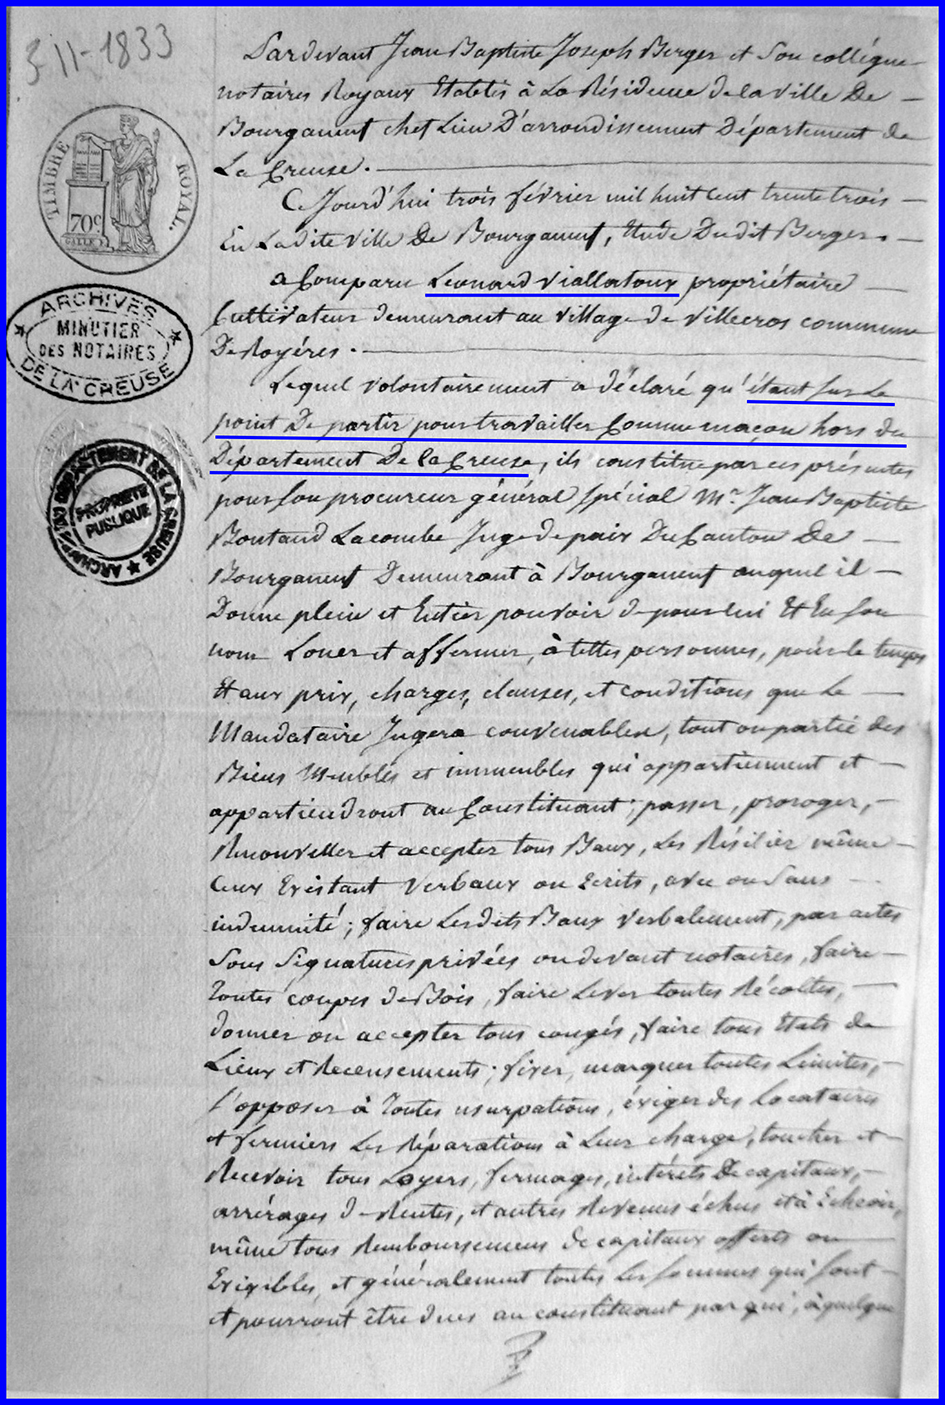 3-11-1833
TIMBRE ROYAL.
70c
ARCHIVES
MINUTIER
DES NOTAIRES
DE LA CREUSE
ARCHIVES DU DEPARTEMENT DE LA CREUSE
PROPRIETE
PUBLIQUE
Pardevant Jean Baptiste Joseph Berger et Son collégue
notaires Royaux Etablis à La Résidence de la Ville De
Bourganeuf chef Lieu D'arrondissement Département de
La Creuse.
Ce Jourd'hui trois février mil huit Cent trente trois
En Ladite Ville De Bourganeuf, Etude Dudit Berger.
a Comparu Leonard Viallatoux propriétaire
Cultivateur demeurant au Village de Villecros commune
De Royéres.
Lequel Volontairement a Déclaré qu'étant Sur Le
point De partir pour travailler Comme maçon hors du
Département De la Creuse, il constitue par ces présentes
pour Son procureur général Spécial Mr. Jean Baptiste
Boutaud Lacombe Juge de paix Du Canton De
Bourganeuf Demeurant à Bourganeuf auquel il
Donne plein et Entier pouvoir de pour lui Et En Son
nom Louer et affermer, à telles personnes, pour le temps
Et aux prix, charges, clauses, et conditions que Le
Mandataire Jugera convenables, tout ou partie des
Biens Meubles et immeubles qui appartiennent et
appartiendront au Constituant; passer, proroger,
Renouveller et accepter tous Baux, Les Résilier même
Ceux Existant Verbaux ou Ecrits, avec ou Sans
indemnité; faire Lesdits Baux Verbalement, par actes
Sous Signatures privées ou devant notaires, faire
Toutes coupes de Bois, faire Lever toutes Récoltes,
donner ou accepter tous congés, faire tous Etats de
Lieux et Recensements; fixer, marquer toutes Limites,
S'opposer à Toutes usurpations, éxiger des Locataires
et fermiers Les Réparations à Leur charge, toucher et
Recevoir tous Loyers, fermages, intérêts De capitaux,
arrérages de Rentes, et autres Revenus échus et à Echoir,
même tous Remboursemens de capitaux offerts ou
Exigibles, et généralement toutes Les Sommes qui Sont
et pourront être dues au constituant par qui, à quelque